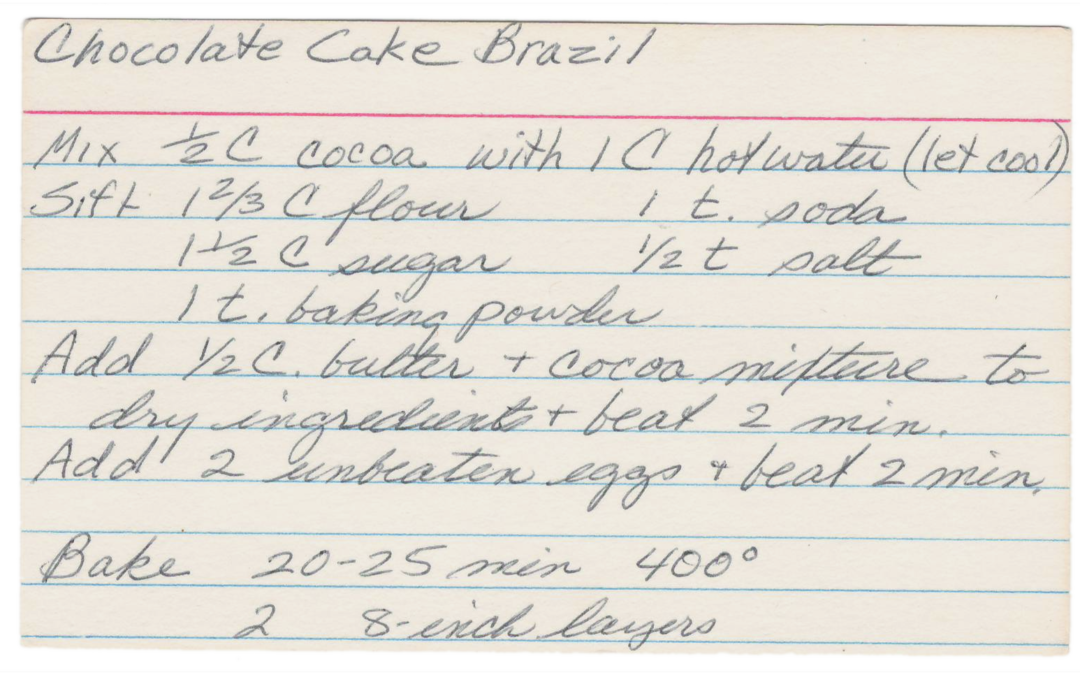 Chocolate Cake Brazil
Mix ½ C cocoa with 1 C hot water (let cool)
Sift 1 2/3 C flour 1 t. soda
1 ½ C sugar ½ t salt
1 t. baking powder
Add ½ C. butter + cocoa mixture to
dry ingredients + beat 2 min.
Add 2 unbeaten eggs + beat 2 min.
Bake 20-25 min 400°
2 8-inch layers